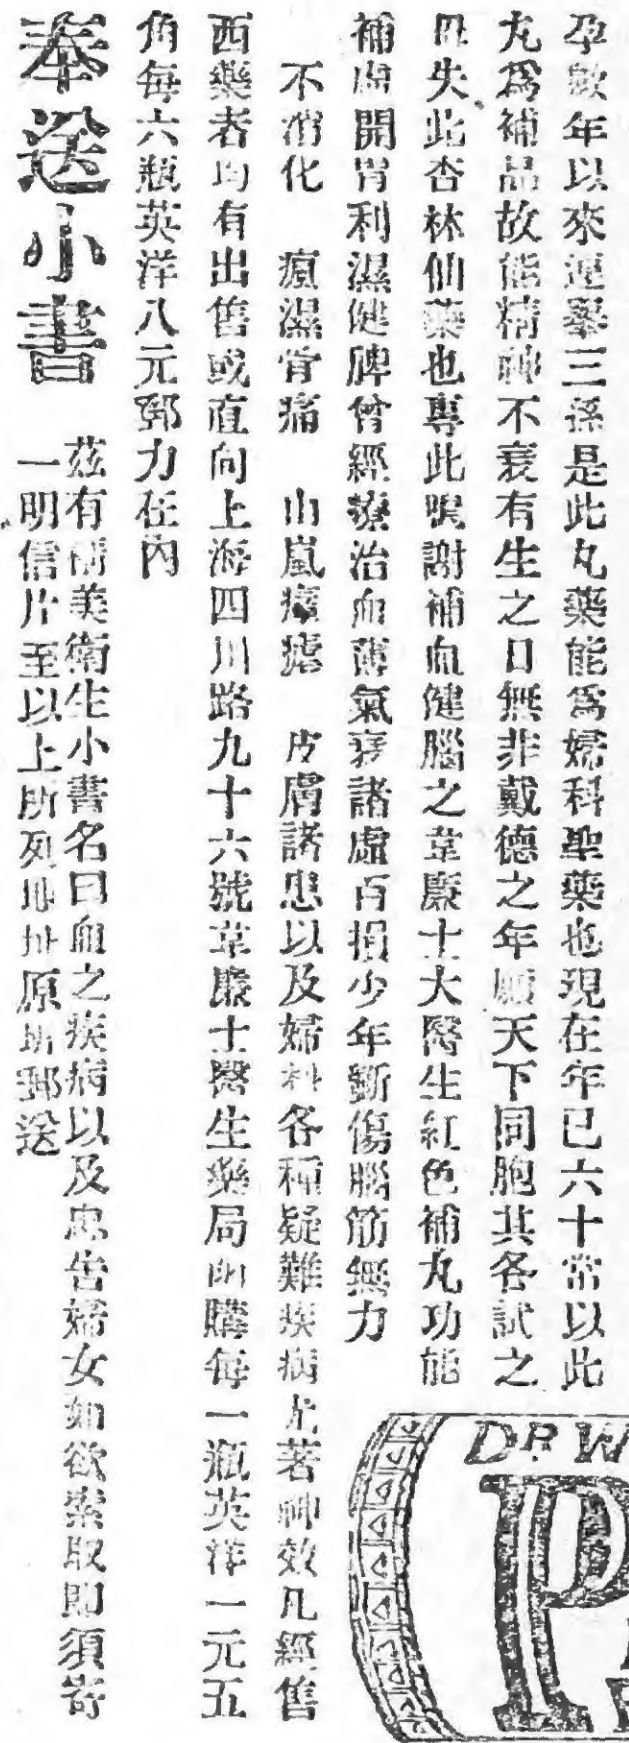 孕數年以來連舉三孫是此丸藥能爲婦科聖藥也現在年已六十常以此
丸爲補品故能精神不衰有生之日無非戴德之年願天下同胞其各試之
毋失此杏林仙藥也專此鳴謝補血健腦之韋廉士大醫生紅色補丸功能
補虛開胃利濕健脾曾經療治血薄氣衰諸虛百損少年斲傷腦筋無力
不消化 瘋濕骨痛 山嵐瘴瘧 皮膚諸患以及婦科各種疑難疾病尤著神效凡經售
西藥者均有出售或直向上海四川路九十六號韋廉士醫生藥局函購每一瓶英洋一元五
角每六瓶英洋八元郵力在內
奉送小書
茲有精美衛生小書名曰血之疾病以及忠告婦女如欲索取即須寄
一明信片至以上所列地址原班郵送
DR W
P